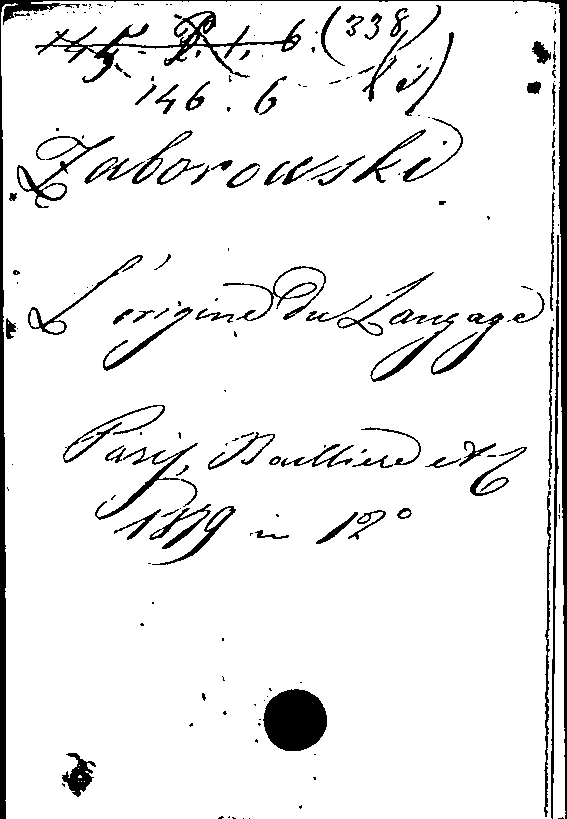 145. R. 1. 6. (338
146. 6
Zaborowski
L'origine du Langage
Paris, Baillière et C
1879 in 12°